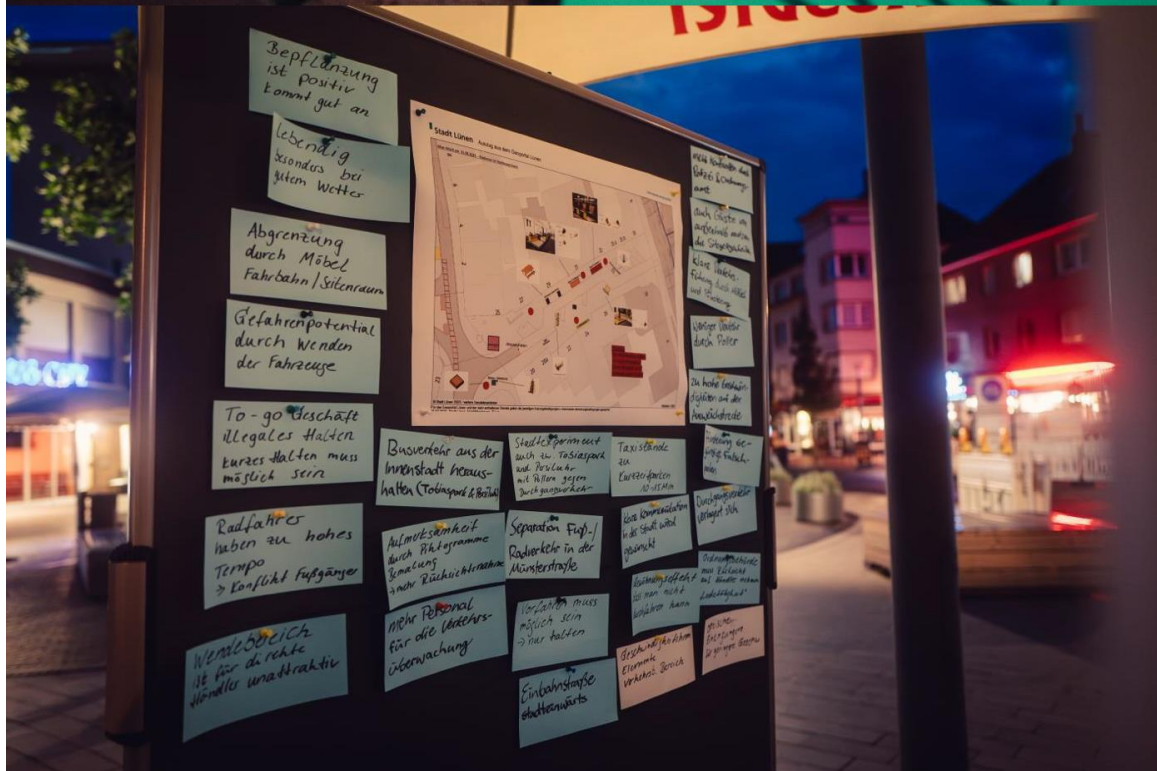 Bepflanzung
ist positiv
kommt gut an
Lebendig
besonders bei
gutem Wetter
Abgrenzung
durch Möbel
Fahrbahn/Seitenraum
Gefahrenpotential
durch Wenden
der Fahrzeuge
To-go Geschäft
illegales Halten
kurzes Halten muss
möglich sein
Radfahrer
haben zu hohes
Tempo
→ Konflikt Fußgänger
Wendebereich
ist für direkte
Händler unattraktiv
Stadt Lünen
Auszug aus dem Geoportal Lünen
Busverkehr aus der
Innenstadt heraus-
halten (Tobiaspark &
Aufmerksamkeit
durch Piktogramme
Bemalung
→ mehr Rücksichtnahme
mehr Personal
für die Verkehrs-
überwachung
Stadtexperiment
auch zw. Tobiaspark
und Persiluhr
mit Pollern gegen
Durchgangsverkehr
Separation Fuß-/
Radverkehr in der
Münsterstraße
Vorfahren muss
möglich sein
→ nur halten
Einbahnstraße
stadteinwärts
Taxistände
zu
Kurzzeitparken
10-15 Min
klare Kommunikation
in der Stadt wird
gewünscht
soll man nicht
Geschwindigkeit
Elemente
verkehrsb. Bereich
mehr Kontrollen durch
Polizei & Ordnungs-
amt
auch Gäste von
außerhalb nutzen
die Sitzgelegenheiten
klare Verkehrs-
führung durch Möbel
weniger Verkehr
durch Poller
zu hohe Geschwin-
digkeiten auf der
Ausweichstrecke
Durchgangsverkehr
verlagert sich